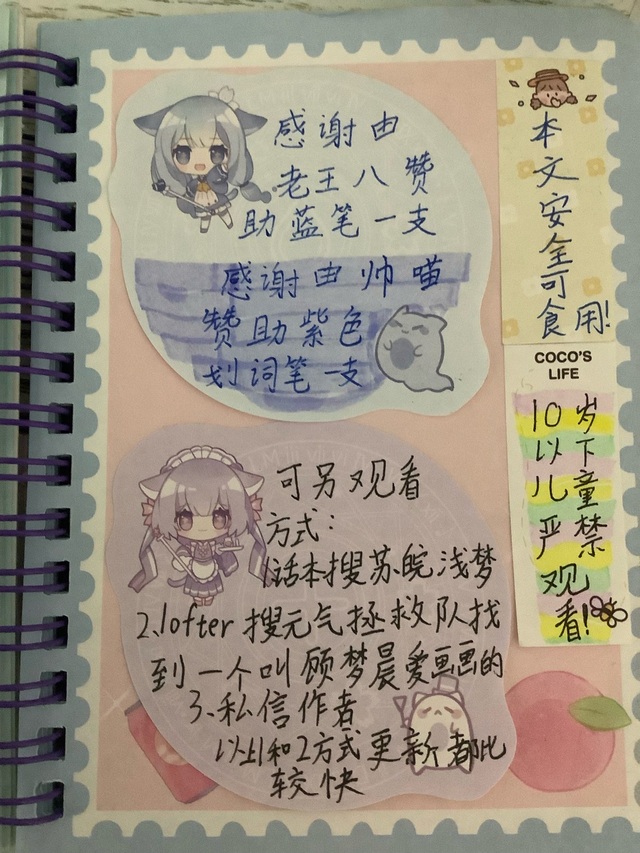 感谢由
老王八赞
助蓝笔一支
感谢由帅喵
赞助紫色
划词笔一支
可另观看
方式：
1.话本搜苏皖浅梦
2.lofter搜元气拯救队找
到一个叫顾梦晨爱画画的
3、私信作者
以上1和2方式更新都比
较快
本文安全可食用!
COCO'S
LIFE
10岁
以下
儿童
严禁
观
看!